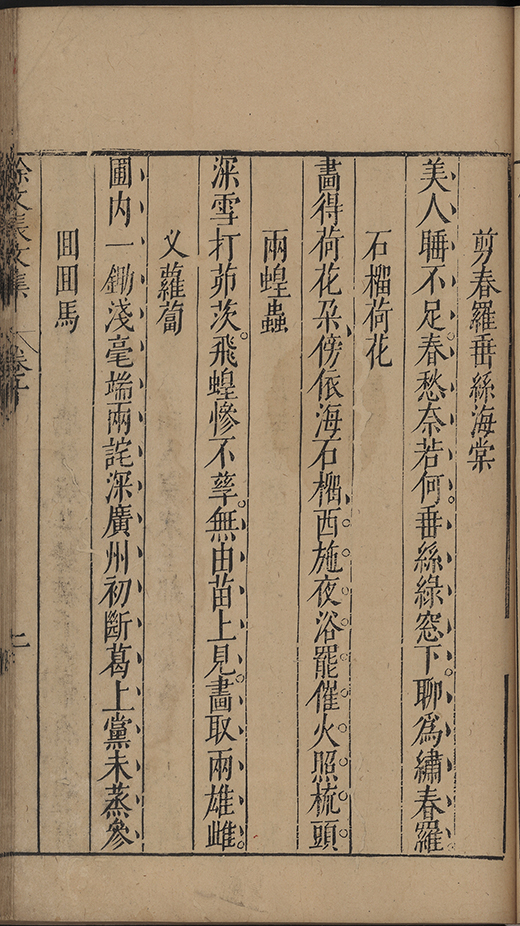 剪春羅垂絲海棠
美人睡不足。春愁奈若何。垂絲綠窓下。聊爲繡春羅
石榴荷花
畵得荷花朶、傍依海石榴、西施夜浴罷。催火照梳頭。
兩蝗蟲
深雪打茆茨。飛蝗慘不孳。無由苗上見。畵取兩雄雌。
乂蘿蔔
圃内一鋤淺毫端兩詫深廣州初斷葛上黨未蒸參
囬囬馬
徐文長文集 卷 二